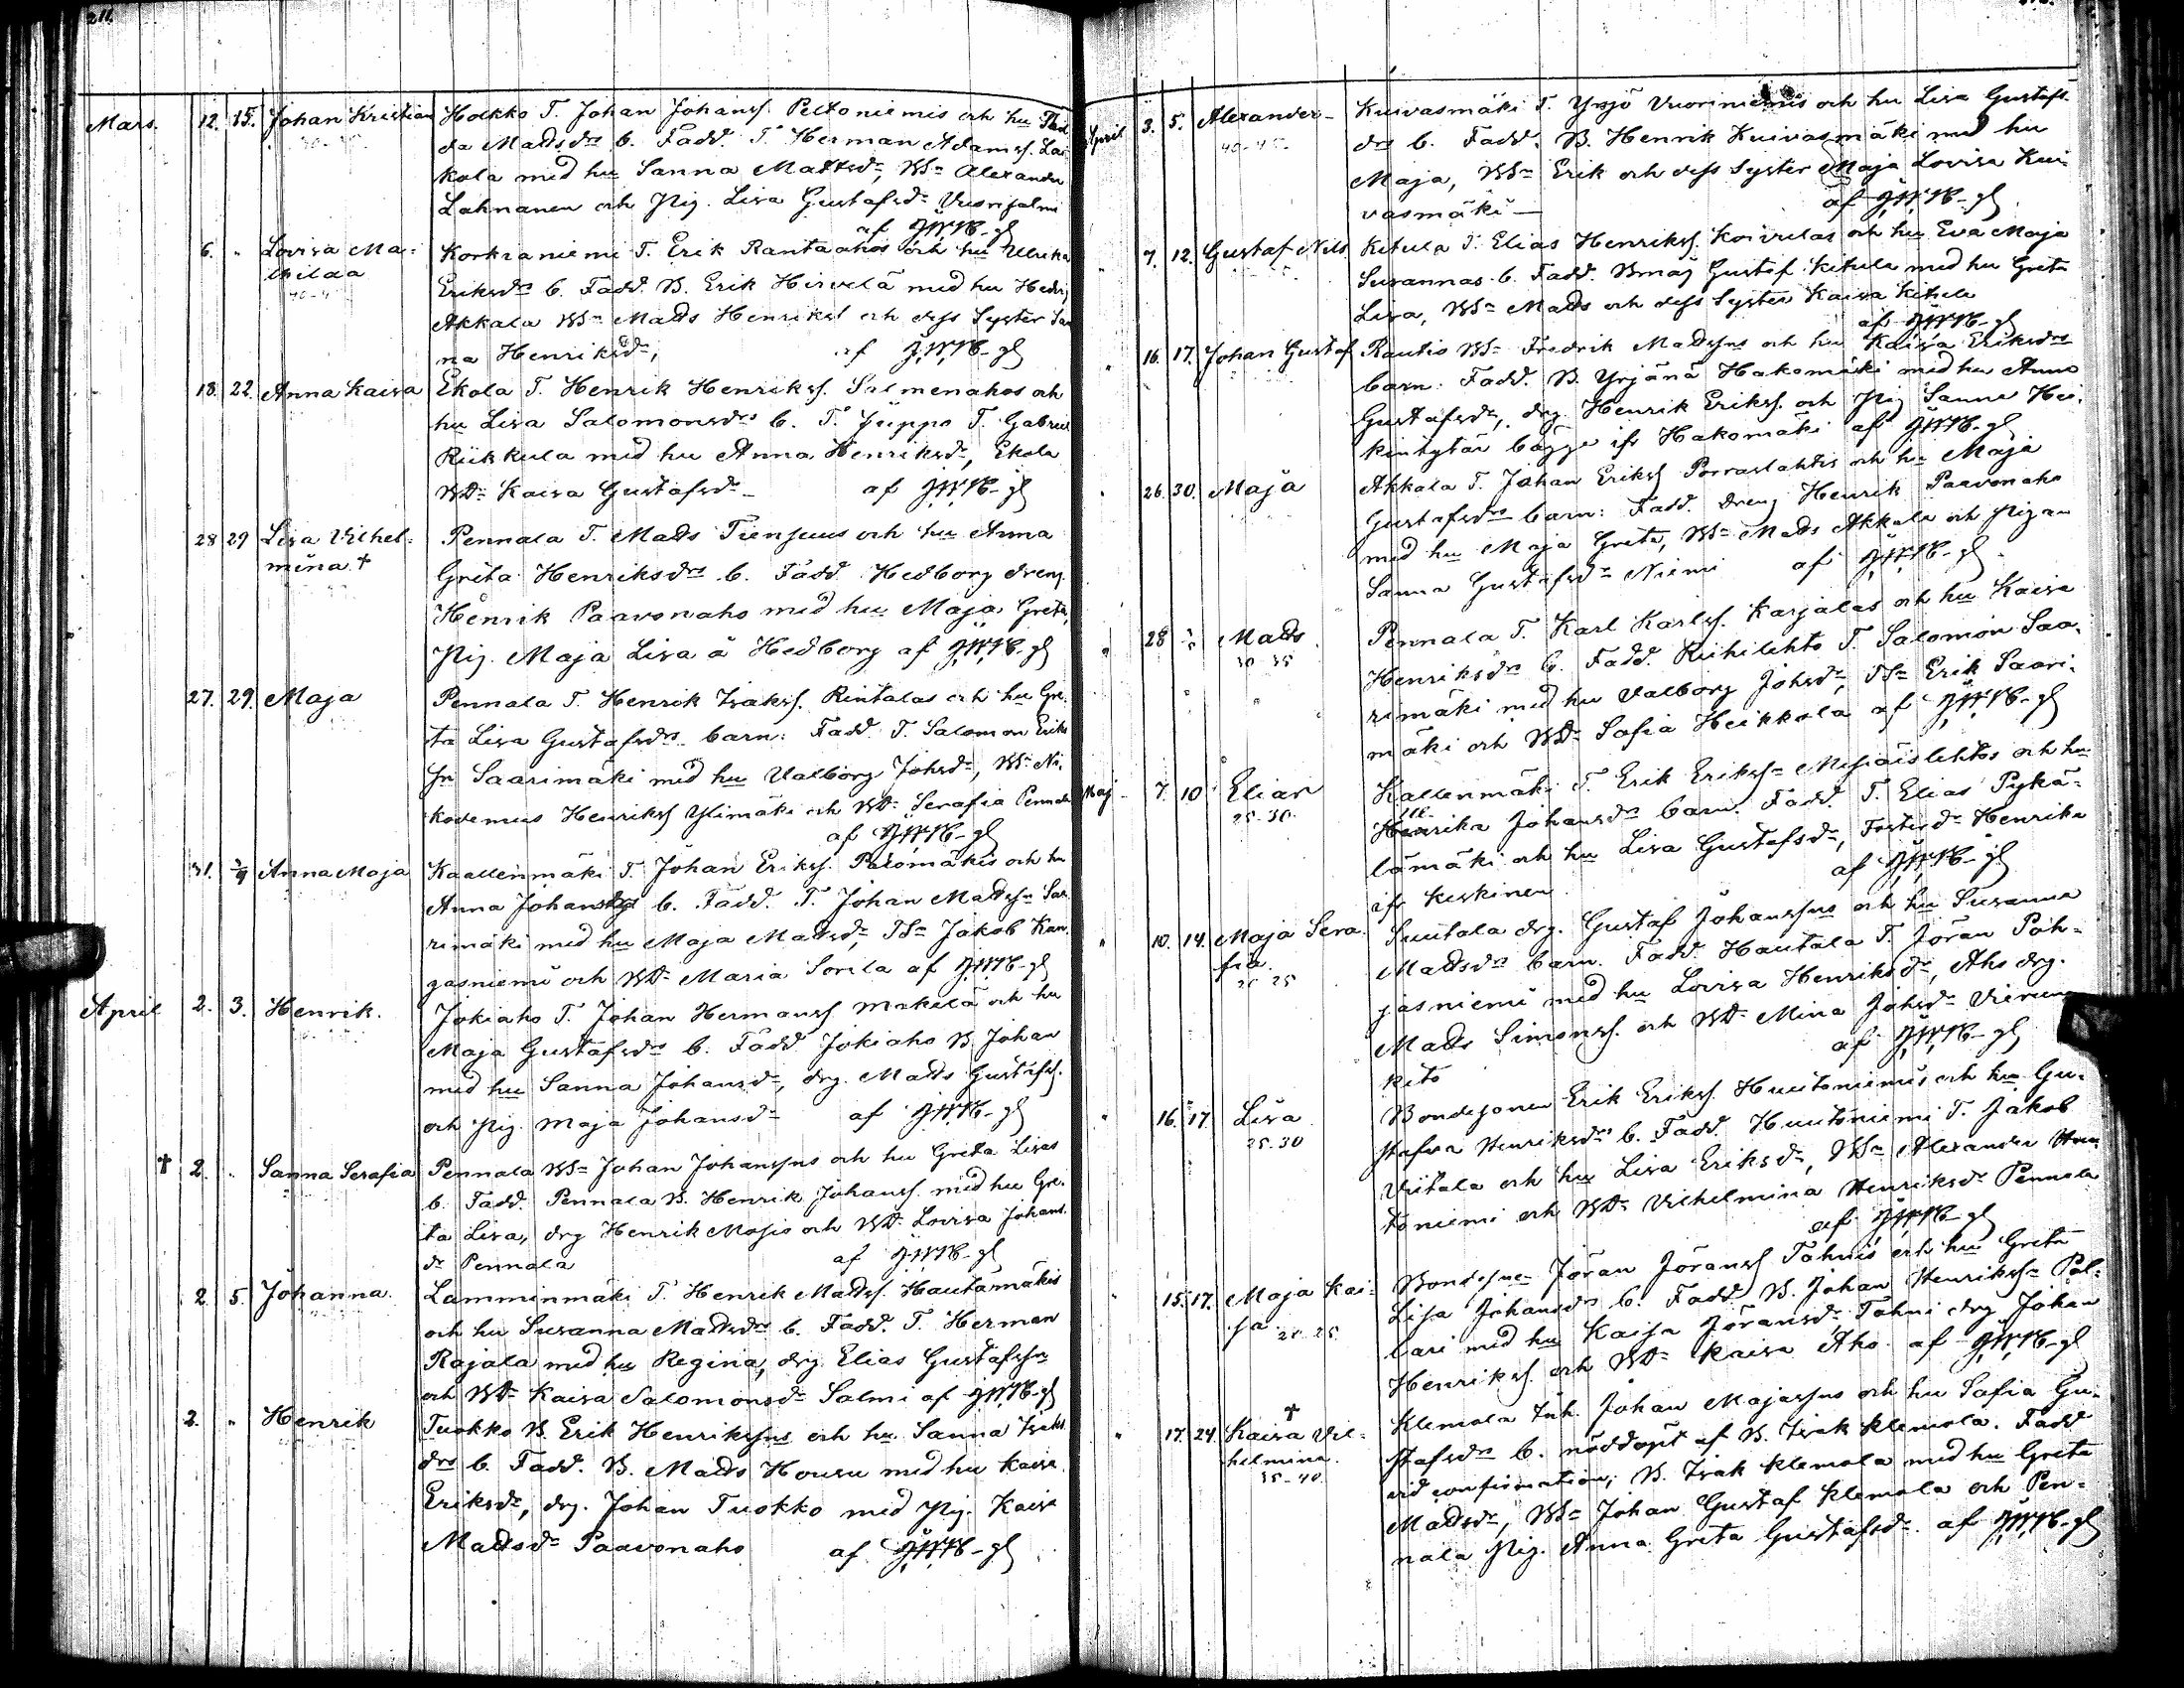 211.
Mars. 12. 15. Johan Kristian Holkko T. Johan Johanss. Peltoniemis och hu
da Matsdrs b. Fadd. T. Herman Adamss. Lai
kala med hu Sanna Mattsdr, BSn Alexander
Lahnanen och Pig. Lisa Gustafsdr Vuorijalmi
af
6. " Lovisa Ma- Korkianiemi T. Erik Rantaahos och hu Ulrika
thilda Eriksdrs b. Fadd. B. Erik Hirvelä med hu Hedvig
40-4 Akkala BSn Matts Henrikss och dess Syster San
na Henriksdr, af
18. 22. Anna Kaisa Ekola T. Henrik Henrikss. Salmenahos och
hu Lisa Salomonsdrs b. T. Juppo T. Gabriel
Riikkula med hu Anna Henriksdr, Ekola
BDr Kaisa Gustafsdr - af
28 29 Lisa Vilhel- Pennala T. Matts Tiensuus och hu Anna
mina † Greta Henriksdrs b. Fadd. Hedborg dreng.
Henrik Paavonaho med hu Maja Greta,
Pig. Maja Lisa å Hedborg af
27. 29. Maja Pennala T. Henrik Isakss. Rintalas och hu Gre-
ta Lisa Gustafsdrs barn: Fadd. T. Salomon Eriks
sn Saarimäki med hu Valborg Johsdr, BSn Ni-
kodemus Henrikss Ylimäki och BDr Serafia Pennala
af
31. 1/4 Anna Maja Kaallenmäki T. Johan Erikss. Palomäkis och hu
Anna Johansdrs b. Fadd. T. Johan Mattssn Saa
rimäki med hu Maja Mattsdr, TSn Jakob Kan
gasniemi och BDr Maria Sorila af
April 2. 3. Henrik. Jokiaho T. Johan Hermanss Makelä och hu
Maja Gustafsdrs b. Fadd. Jokiaho B. Johan
med hu Sanna Johansdr, drg. Matts Gustafss.
och Pig. Maja Johansdr af
† 2. " Sanna Serafia Pennala BSn Johan Johanssns och hu Greta Lisas
b. Fadd. Pennala B. Henrik Johanss. med hu Gre-
ta Lisa, drg Henrik Mosjo och BDr Lovisa Johans
dr Pennala af
2. 5. Johanna. Lamminmäki T. Henrik Mattss. Hautamäkis
och hu Susanna Mattsdrs b. Fadd. T. Herman
Rajala med hu Regina, drg. Elias Gustafssn
och BDr Kaisa Salomonsdr Salmi af
2. " Henrik Tuokko B. Erik Henrikssns och hu Sanna Isaks
drs b. Fadd. B. Matts Housu med hu Kaisa
Eriksdr, drg. Johan Tuokko med Pig. Kaisa
Mattsdr Paavonaho af
April 3. 5. Alexander - Kuivasmäki T. Yrjö Vuoriniemis och hu Lisa Gustafs
40-45 drs b. Fadd. B. Henrik Kuivasmäki med hu
Maja, BSn Erik och dess Syster Maja Lovisa Kui-
vasmäki - af
" 7. 12. Gustaf Nils Kitula T. Elias Henrikss. Koivulas och hu Eva Maja
Susannas b. Fadd. Gustaf Kitula med hu Greta
Lisa, BSn Matts och dess Syster Kaisa Kitula
af
" 16. 17. Johan Gustaf Rautio BSn Fredrik Mattssns och hu Kaisa Eriksdrs
barn: Fadd. B. Yrjänä Hakomäki med hu Anna
Gustafsdr, drg. Henrik Erikss. och Pig Sanna Hei-
kintytär bägge ifr Hakomäki af
" 26. 30. Maja Akkala T. Johan Erikss Porraslahtis och hu Maja
Gustafsdrs barn: Fadd. Dreng Henrik Paavonaho
med hu Maja Greta, BSn Matts Akkala och Pigan
Sanna Gustafsdr Niemi af
" 28 Matts Pennala T. Karl Karlss. Karjalas och hu Kaisa
30-35 Henriksdrs b. Fadd. Riihilehto T. Salomon Saa-
rimäki med hu Valborg Johsdr, TSn Erik Saari-
mäki och BDr Sofia Heikkola af
Maj - 7. 10 Elias Kallenmäki T. Erik Erikssn Mesiäislehtos och hu
25-30. Henrika Johansdrs barn. Fadd. T. Elias Pykä-
lämäki och hu Lisa Gustafsdr, Fosterdr Henrika
ifr Keskinen af
" 10. 14. Maja Sera- Suutala drg. Gustaf Johanssns och hu Susanna
fia. Mattsdrs barn. Fadd. Hautala T. Jöran Poh-
25 jasniemi med hu Lovisa Henriksdr, Aho drg.
Matts Simonss. och BDr Mina Johsdr Vieruen
pito af
" 16. 17. Lisa Bondesonen Erik Erikss. Huutoniemis och hu Gu-
25.30 stafva Henriksdrs b. Fadd. Huutoniemi T. Jakob
Viitala och hu Lisa Eriksdr, BSn Alexander Huu
toniemi och BDr Vilhelmina Henriksdr Pennala
af
" 15. 17. Maja Kai- Bondesne Jöran Jöranss Tohnis och hu Greta
sa. Lisa Johansdrs b. Fadd. B. Johan Henrikssn Pal-
20 25 lari med hu Kaisa Jöransdr Tohni drg Johan
Henrikss. och BDr Kaisa Aho af
†
" 17. 24. Kaisa Vil- Klemola Inh. Johan Majassns och hu Sofia Gu-
helmina. stafsdrs b. nöddöpt af B. Isak Klemola. Fadd
35-40. vid confirmation; B. Isak Klemola med hu Greta
Mattsdr, BSn Johan Gustaf Klemola och Pen-
nala Pig. Anna Greta Gustafsdr. af